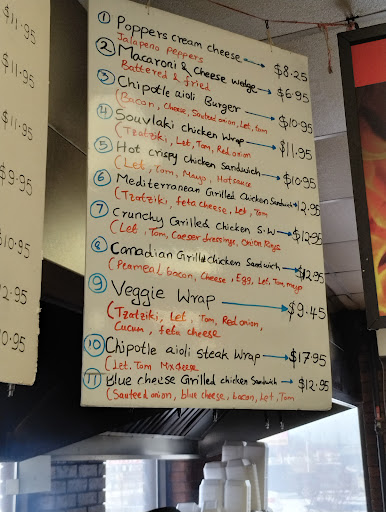 $11.95
$11.95
11.95
$9.95
10.95
12.95
10.95
1 Poppers cream cheese → $8.25
Jalapeno Peppers
2 Macaroni & cheese wedge → $6.95
Battered & fried
3 Chipotle aioli Burger → $10.95
(Bacon, Cheese, Sauteed onion, Let, Tom
4 Souvlaki chicken wrap → $11.95
(Tzatziki, Let, Tom, Red onion
5 Hot crispy chicken Sandwich → $10.95
(Let, Tom, Mayo, Hot sauce
6 Mediterranean Grilled Chicken Sandwich 12.95
(Tzatziki, feta cheese, Let, Tom
7 Crunchy Grilled chicken S.W → $12.95
(Let, Tom, Caeser dressings, Onion Rings
8 Canadian Grilled chicken Sandwich → $12.95
(Peameal bacon, Cheese, Egg, Let, Tom, mayo
9 Veggie Wrap → $9.45
(Tzatziki, Let, Tom, Red onion,
Cucum, feta cheese
10 Chipotle aioli steak wrap → $17.95
(Let, Tom Mx cheese
11 Blue cheese Grilled chicken Sandwich → $12.95
(Sauteed onion, blue cheese, bacon, Let, Tom